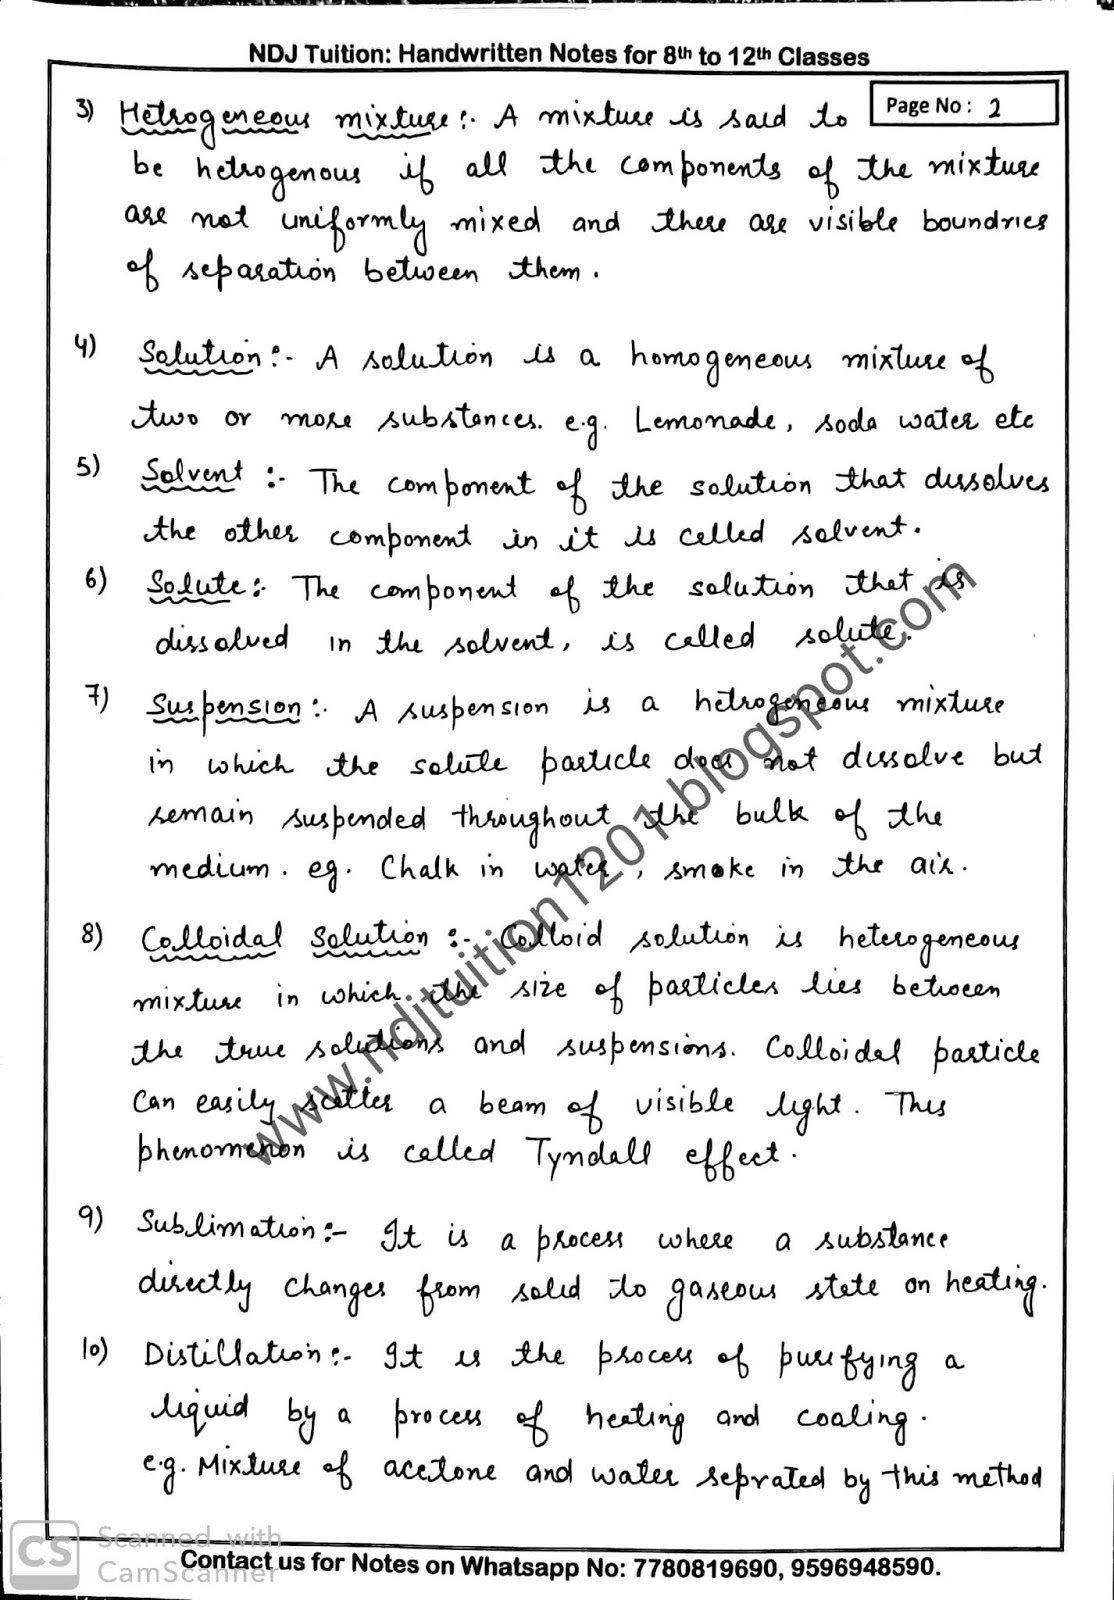 NDJ Tuition: Handwritten Notes for 8th to 12th Classes
Page No: 2
3) Hetrogeneous mixture:- A mixture is said to
be hetrogenous if all the components of the mixture
are not uniformly mixed and there are visible boundries
of separation between them.
4) Solution:- A solution is a homogeneous mixture of
two or more substances. e.g. Lemonade, soda water etc
5) Solvent:- The component of the solution that dissolves
the other component in it is called solvent.
6) Solute:- The component of the solution that is
dissolved in the solvent, is called solute.
7) Suspension:- A suspension is a hetrogeneous mixture
in which the solute particle does not dissolve but
remain suspended throughout the bulk of the
medium. eg. Chalk in water, smoke in the air.
8) Colloidal Solution:- Colloid solution is heterogeneous
mixture in which the size of particles lies between
the true solutions and suspensions. Colloidal particle
can easily scatter a beam of visible light. This
phenomenon is called Tyndall effect.
9) Sublimation:- It is a process where a substance
directly changes from solid to gaseous state on heating.
10) Distillation:- It is the process of purifying a
liquid by a process of heating and cooling.
e.g. Mixture of acetone and water seprated by this method
www.ndjtuition1201.blogspot.com
CS Scanned with
CamScanner
Contact us for Notes on Whatsapp No: 7780819690, 9596948590.